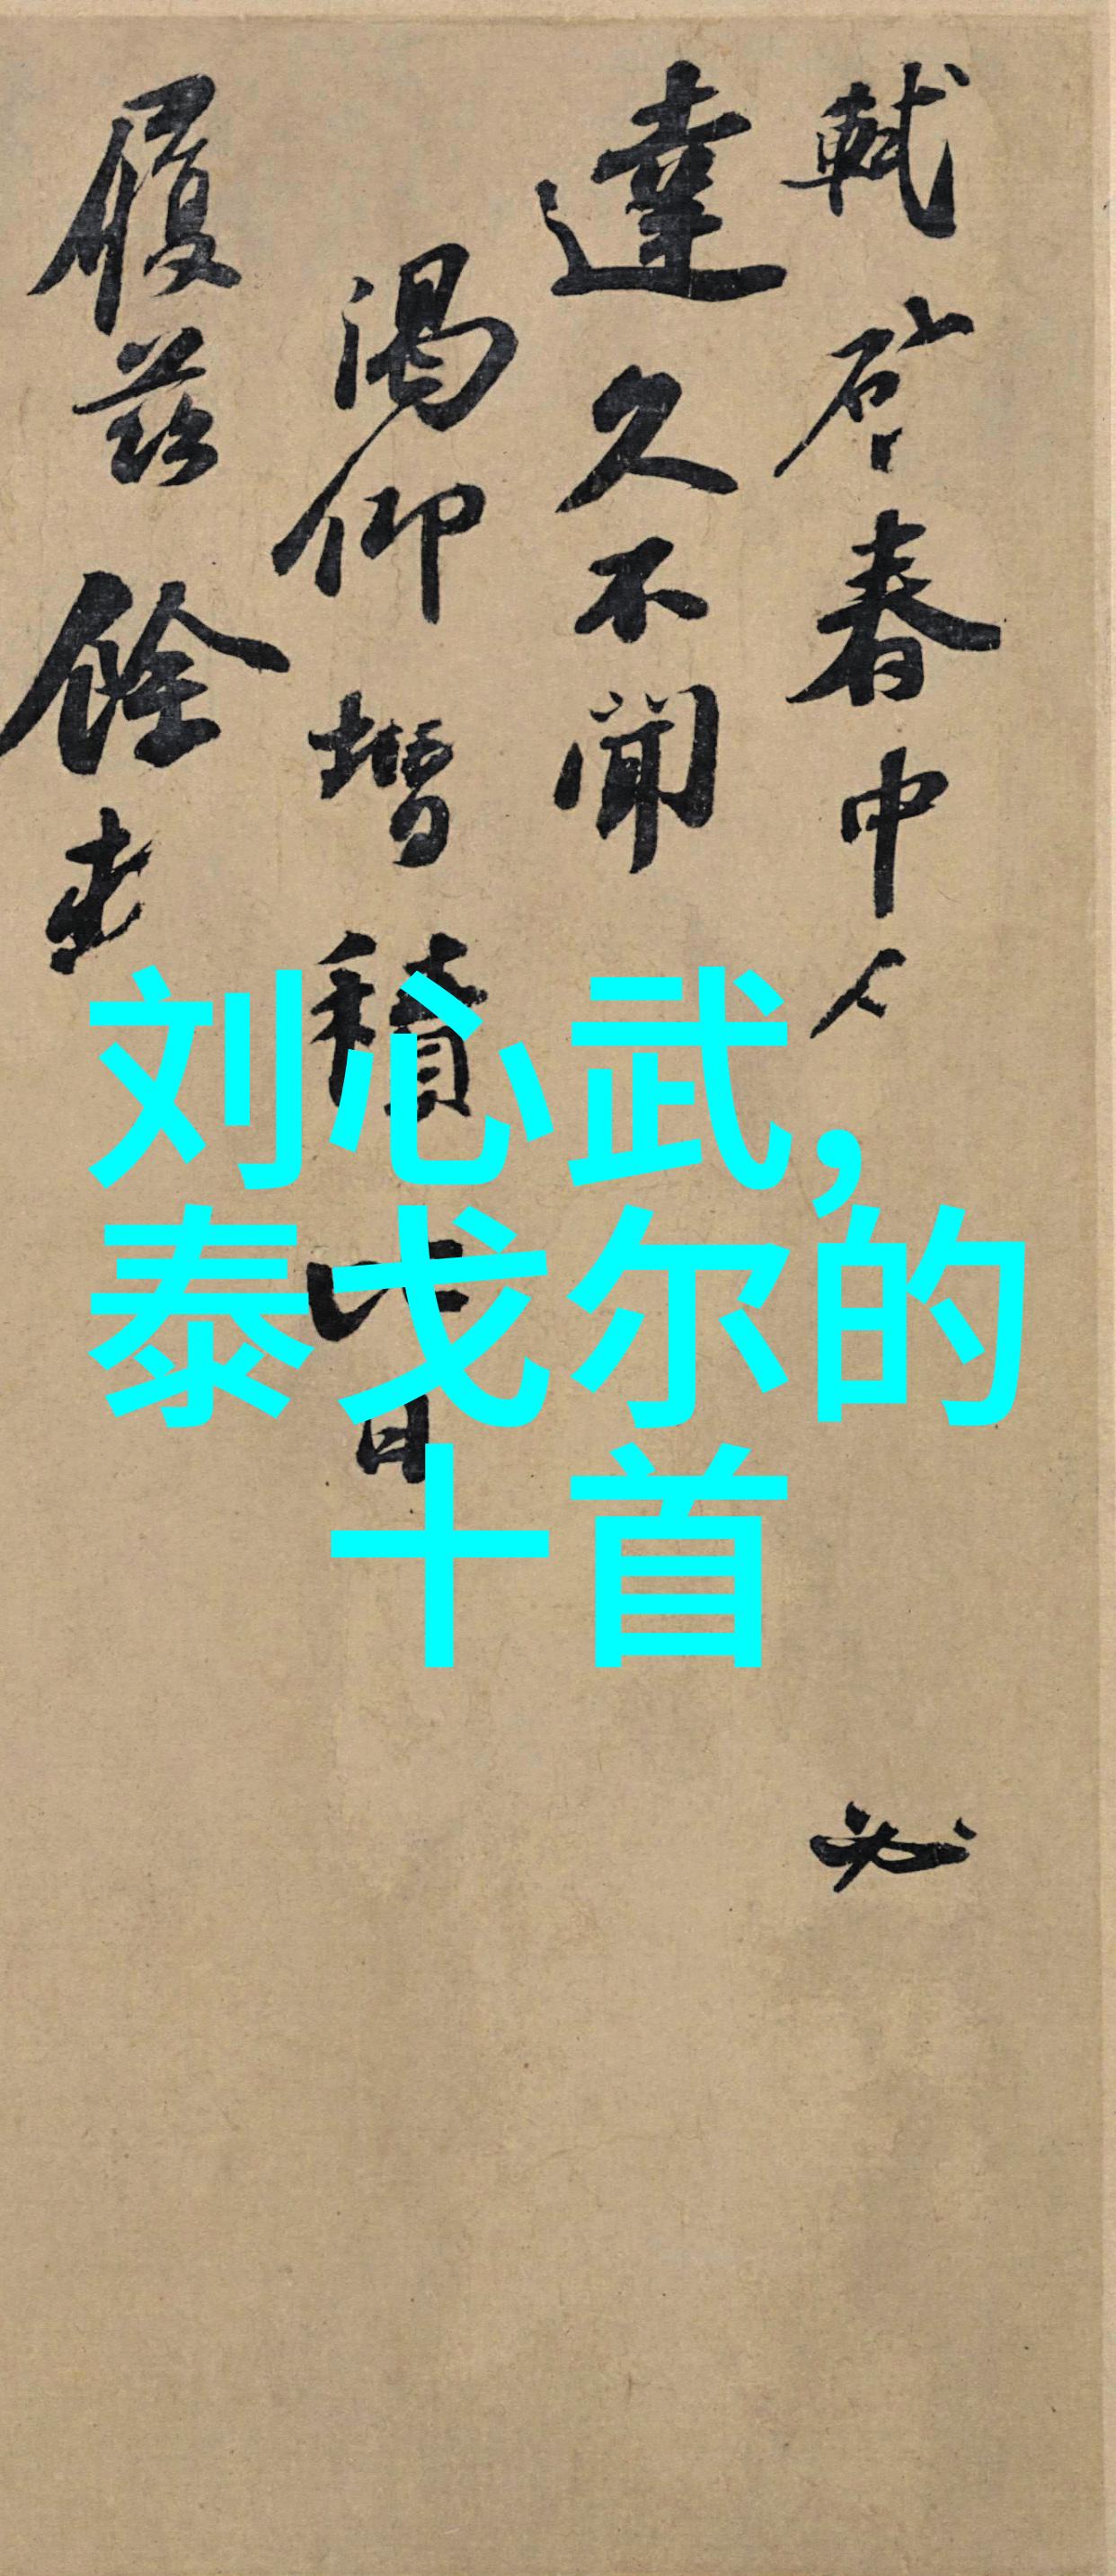 軾啓春中人
必
達久不聞
渴仰增積比日
履茲餘
刘心武，
泰戈尔的
十首